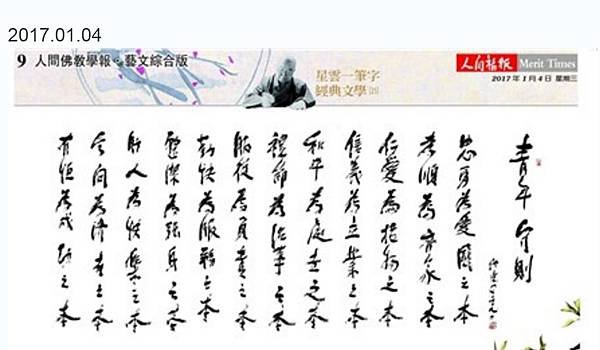 2017.01.04
9 人間佛教學報・藝文綜合版
星雲一筆字
經典文學
人间福报 Merit Times
2017年1月4日 星期三
青年守則
忠勇為愛國之本
孝順為齊家之本
仁愛為接物之本
信義為立業之本
和平為處世之本
禮節為治事之本
服從為負責之本
勤儉為服務之本
整潔為強身之本
助人為快樂之本
學問為濟世之本
有恆為成功之本